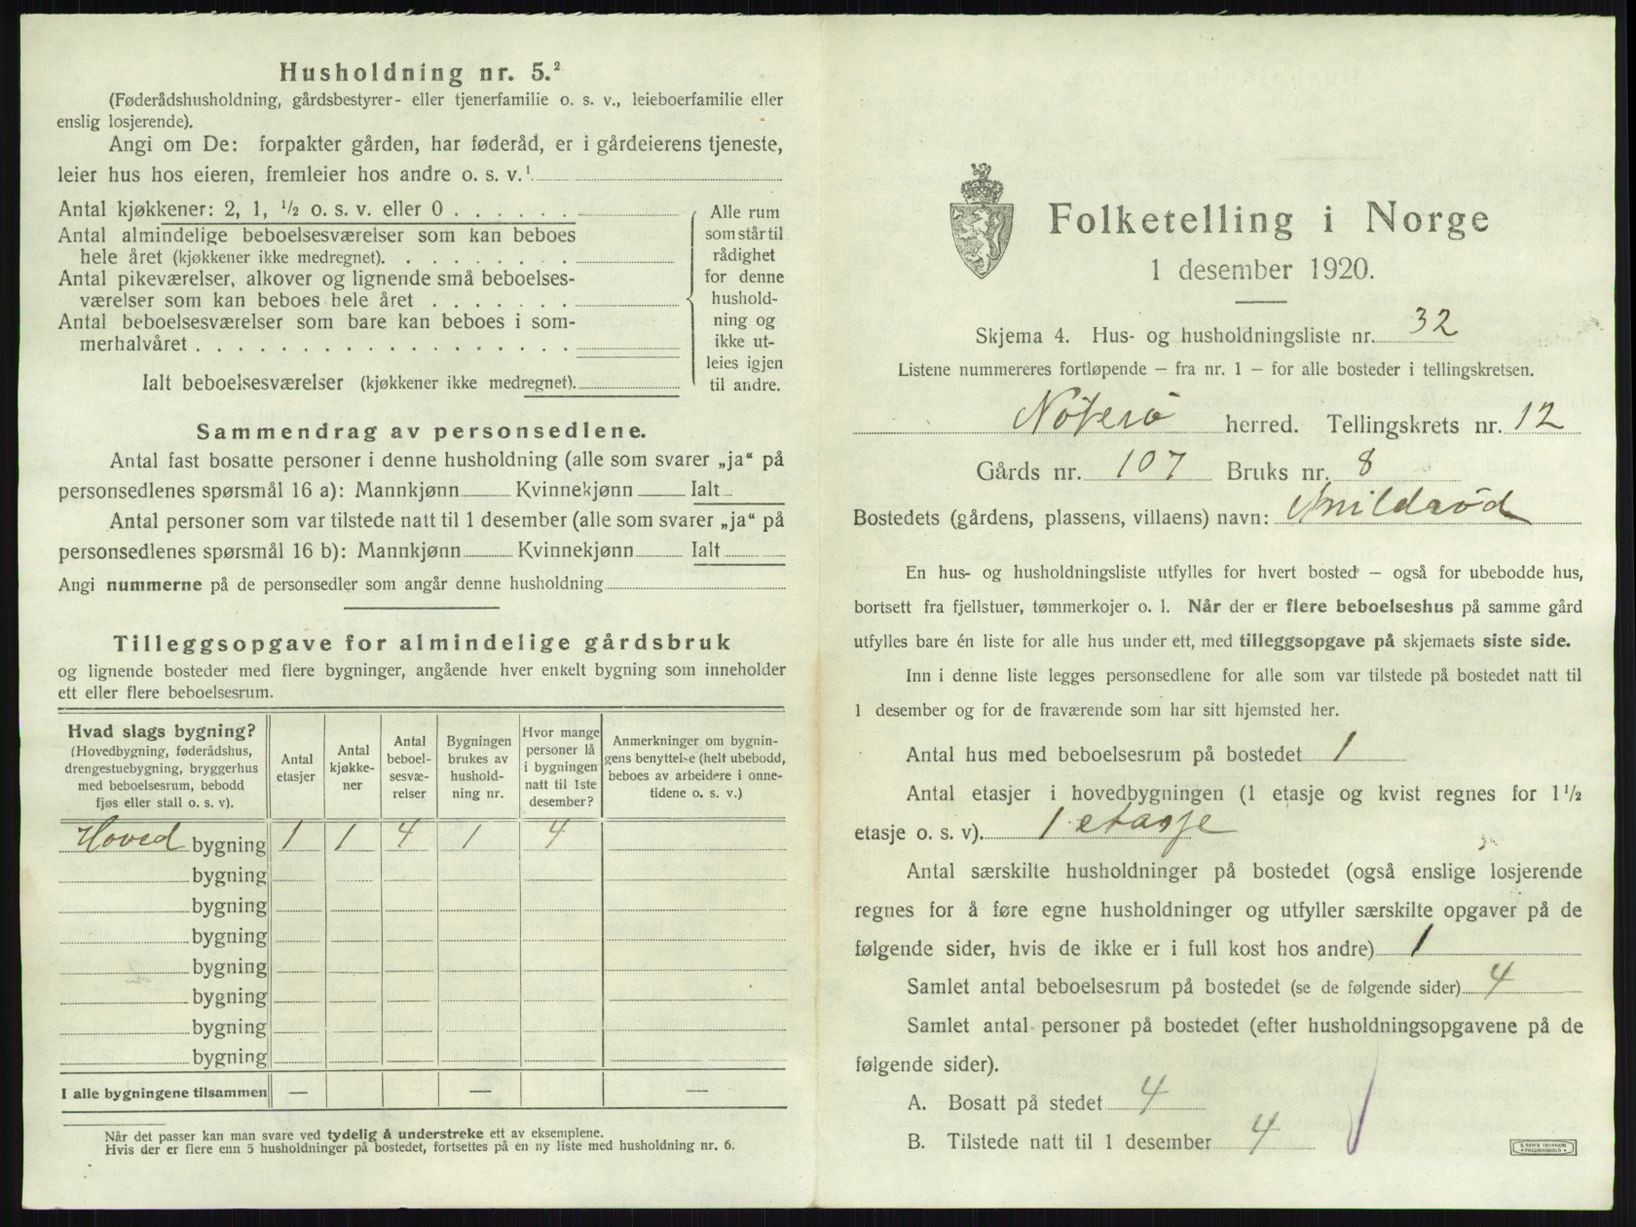 Husholdning nr. 5.²
(Føderådshusholdning, gårdsbestyrer- eller tjenerfamilie o. s. v., leieboerfamilie eller
enslig losjerende).
Angi om De: forpakter gården, har føderåd, er i gårdeierens tjeneste,
leier hus hos eieren, fremleier hos andre o. s. v.¹
Antal kjøkkener: 2, 1, ½ o. s. v. eller 0
Antal almindelige beboelsesværelser som kan beboes
hele året (kjøkkener ikke medregnet).
Antal pikeværelser, alkover og lignende små beboelses-
værelser som kan beboes hele året
Antal beboelsesværelser som bare kan beboes i som-
merhalvåret
Ialt beboelsesværelser (kjøkkener ikke medregnet).
Alle rum
som står til
rådighet
for denne
hushold-
ning og
ikke ut-
leies igjen
til andre.
Sammendrag av personsedlene.
Antal fast bosatte personer i denne husholdning (alle som svarer „ja“ på
personsedlenes spørsmål 16 a): Mannkjønn Kvinnekjønn Ialt
Antal personer som var tilstede natt til 1 desember (alle som svarer „ja“ på
personsedlenes spørsmål 16 b): Mannkjønn Kvinnekjønn Ialt
Angi nummerne på de personsedler som angår denne husholdning
Tilleggsopgave for almindelige gårdsbruk
og lignende bosteder med flere bygninger, angående hver enkelt bygning som inneholder
ett eller flere beboelsesrum.
Hvad slags bygning?
(Hovedbygning, føderådshus,
drengestuebygning, bryggerhus
med beboelsesrum, bebodd
fjøs eller stall o. s. v).
Antal
etasjer
Antal
kjøkke-
ner
Antal
beboel-
sesvæ-
relser
Bygningen
brukes av
hushold-
ning nr.
Hvor mange
personer lå
i bygningen
natt til 1ste
desember?
Anmerkninger om bygnin-
gens benyttelse (helt ubebodd,
beboes av arbeidere i onne-
tidene o. s. v.)
Hoved bygning 1 1 4 1 4
bygning
bygning
bygning
bygning
bygning
bygning
bygning
I alle bygningene tilsammen — — —
Når det passer kan man svare ved tydelig å understreke ett av eksemplene.
Hvis der er flere enn 5 husholdninger på bostedet, fortsettes på en ny liste med husholdning nr. 6.
Folketelling i Norge
1 desember 1920.
Skjema 4. Hus- og husholdningsliste nr. 32
Listene nummereres fortløpende — fra nr. 1 — for alle bosteder i tellingskretsen.
Nøterø herred. Tellingskrets nr. 12
Gårds nr. 107 Bruks nr. 8
Bostedets (gårdens, plassens, villaens) navn: Smildrød
En hus- og husholdningsliste utfylles for hvert bosted — også for ubebodde hus,
bortsett fra fjellstuer, tømmerkojer o. l. Når der er flere beboelseshus på samme gård
utfylles bare én liste for alle hus under ett, med tilleggsopgave på skjemaets siste side.
Inn i denne liste legges personsedlene for alle som var tilstede på bostedet natt til
1 desember og for de fraværende som har sitt hjemsted her.
Antal hus med beboelsesrum på bostedet 1
Antal etasjer i hovedbygningen (1 etasje og kvist regnes for 1½
etasje o. s. v). 1 etasje
Antal særskilte husholdninger på bostedet (også enslige losjerende
regnes for å føre egne husholdninger og utfyller særskilte opgaver på de
følgende sider, hvis de ikke er i full kost hos andre) 1
Samlet antal beboelsesrum på bostedet (se de følgende sider) 4
Samlet antal personer på bostedet (efter husholdningsopgavene på de
følgende sider).
A. Bosatt på stedet 4
B. Tilstede natt til 1 desember 4